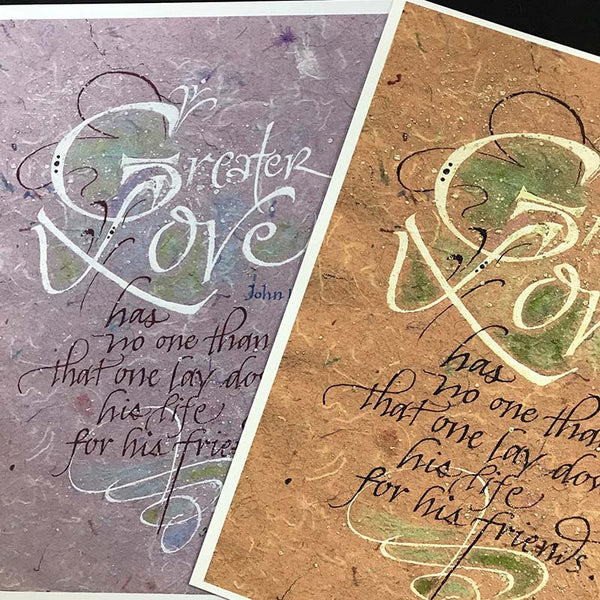 Greater
Love
John
has
no one than
that one lay
his life
for his
has
no one
that one lay
his life
for his friends.